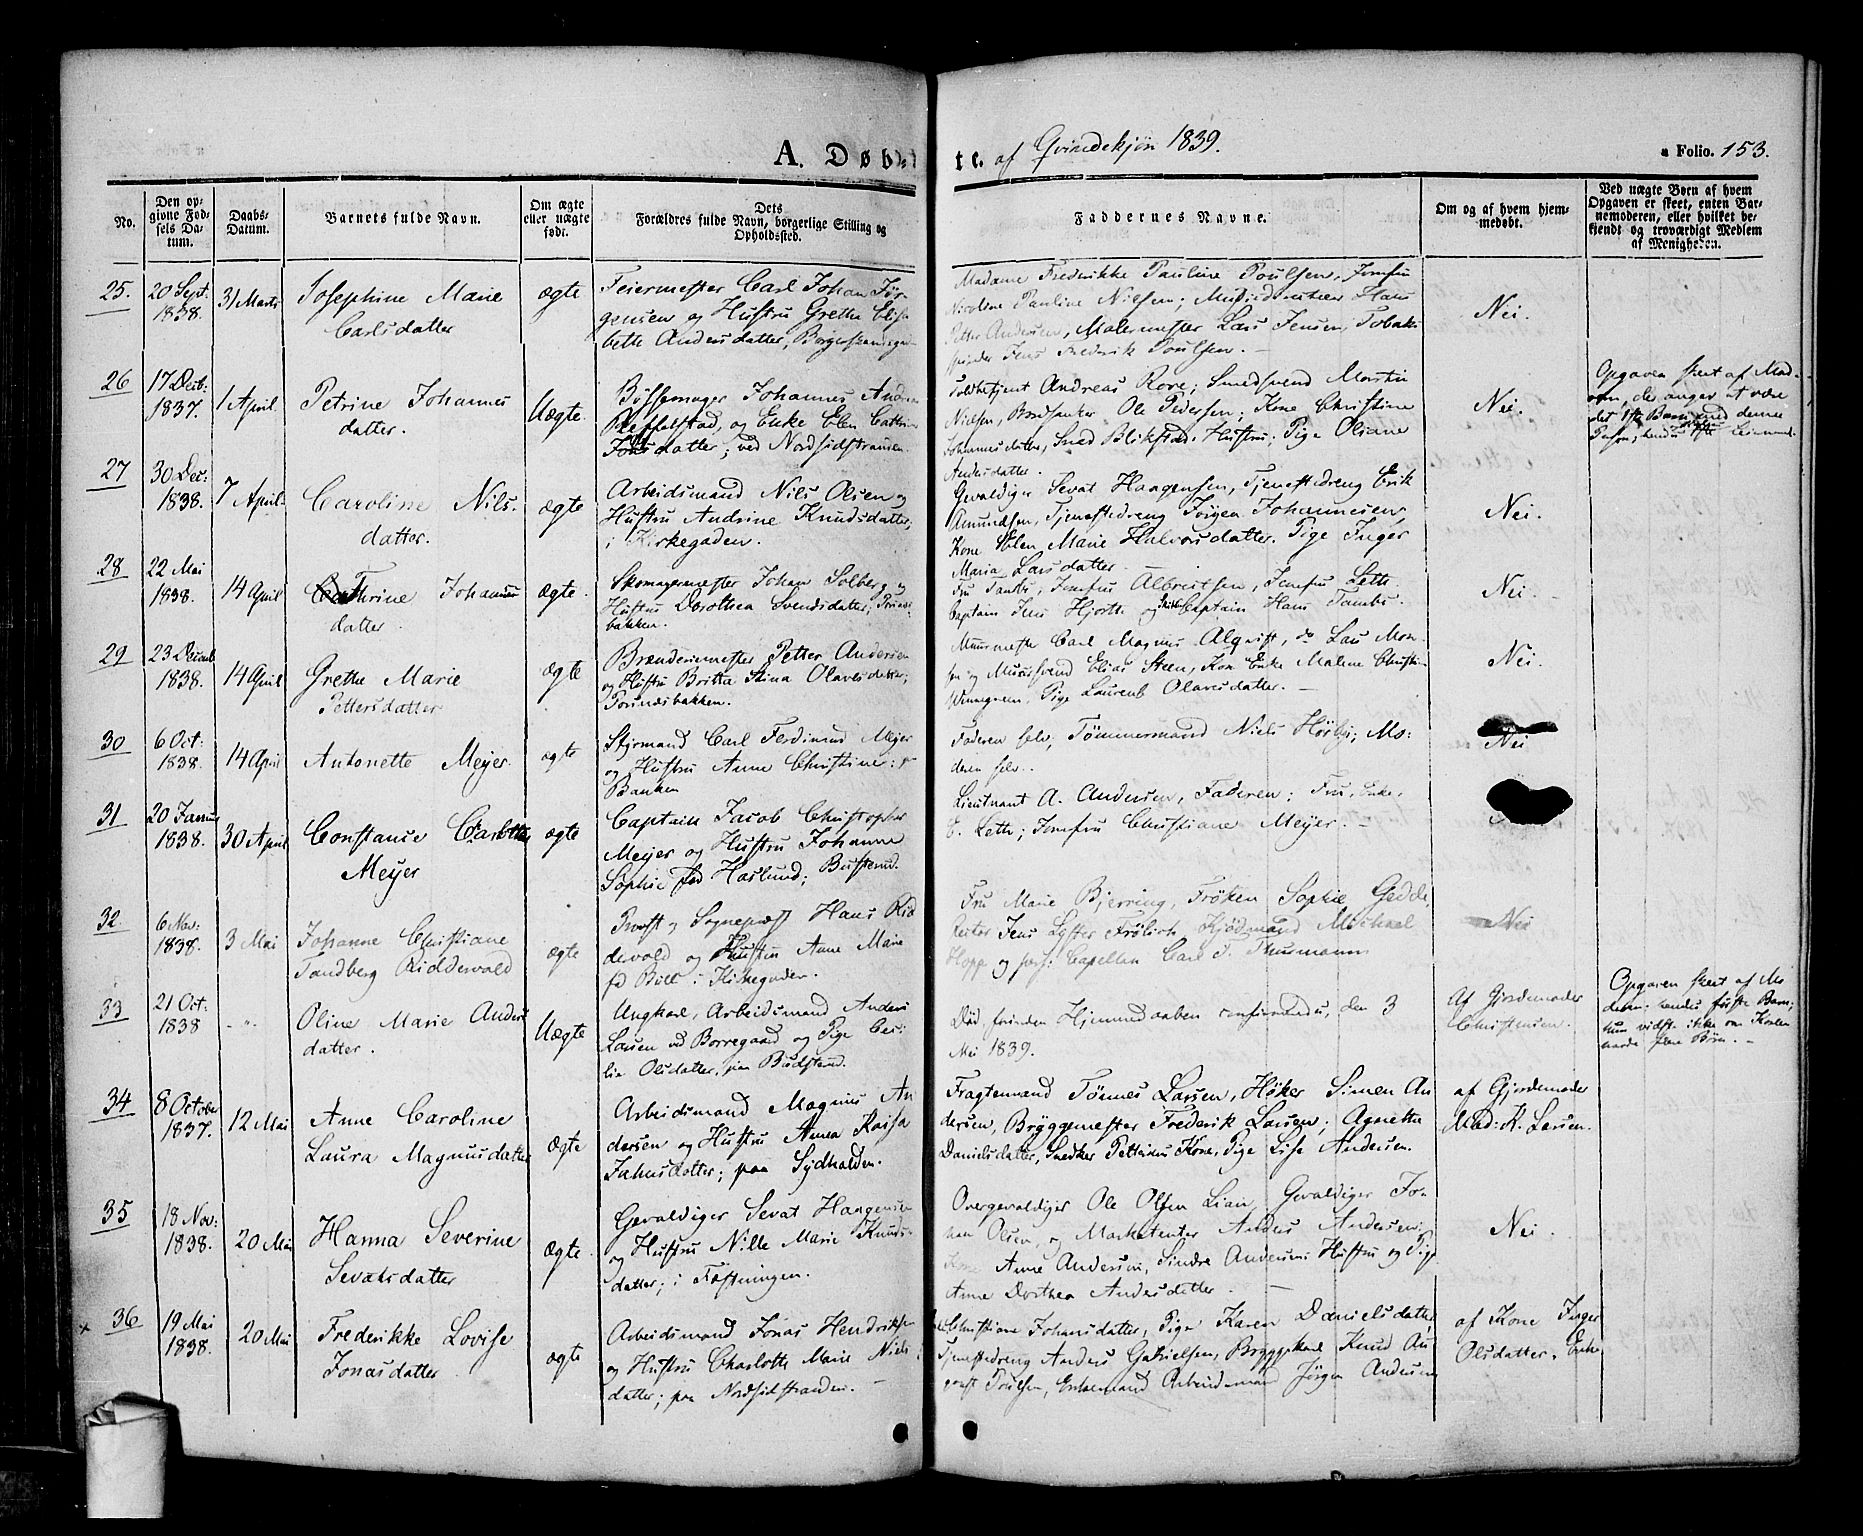 A. Døb-
te. af Qvindekjøn 1839.
a Folio. 153.
No.
Den op-
givne Fød-
sels Da-
tum.
Daabs-
Datum.
Barnets fulde Navn.
Om ægte
eller uægte
født.
Dets
Forældres fulde Navn, borgerlige Stilling og
Opholdssted.
Faddernes Navne.
Om og af hvem hjem-
medøbt.
Ved uægte Børn af hvem
Opgaven er skeet, enten Bar-
nemoderen, eller hvilket be-
kjendt og troværdigt Medlem
af Menigheden.
25.
20 Sept.
1838.
31 Marts
Josephine Marie
Carlsdatter
ægte
Feiermester Carl Johan Jør-
gensen og Hustru Grethe Elisa
beth Andersdatter,
Madame Frederikke Pauline Poulsen, Jomfru
Nicoline Pauline Nielsen; Hans
Petter Andersen, Malermester Lars Jensen, Tobak-
spinder Jens Frederik Poulsen. –
Nei.
26
17 Decb.
1837.
1 April
Petrine Johannes
datter.
Uægte.
Bøssemager Johannes
og Enke Elen Cathrine
datter; ved Nordsidstranden.
Toldbetjent Andreas Rove; Smedsvend Martin
Nielsen, Ole Pedersen; Kone Christine
Johannesdatter, Hustru; Pige Oliane
Andersdatter.
Nei.
Opgaven skeet af Mod-
ren, der anger at være
det 1ste Barn med denne
27
30 Dec:
1838.
7 April
Caroline Nils-
datter.
ægte
Arbeidsmand Nils Olsen og
Hustru Andrine Knudsdatter;
i Kirkegaden.
Gevaldiger Sevat Haagensen, Tjenestedreng Erik
Amundsen, Tjenestedreng Jørgen Johannesen,
Kone Elen Marie Halvorsdatter. Pige Inger
Maria Larsdatter. –
Nei.
28
22 Mai
1838.
14 April
Cathrine Johannes
datter.
ægte.
Skomagermester Johan Solberg og
Hustru Dorothea Svendsdatter,
bakken.
Fru Jomfru Albretsen, Jomfru Leth.
Captain Jens Hjorth og Captain Hans
Nei.
29
23 Decmb
1838.
14 April
Grethe Marie
Pettersdatter
ægte
Brænderiemester Petter Andersen
og Hustru Britta Stina Olavesdatter;
Muurmester Carl Magnus Alqvist, do Lars
og Muursvend Elias Steen, Kone Enke Malene
Pige Laurenb Olavesdatter. –
Nei.
30
6 Oct:
1838.
14 April
Antonette Meyer
ægte
Styrmand Carl Ferdinand Meyer
og Hustru Anne Christine:
Banken
Faderen selv, Tømmermand Niels Mo:
deren selv.
Nei
31
20 Januar
1838.
30 April
Constance Charlotte
Meyer
ægte
Captain Jacob Christopher
Meyer og Hustru Johanne
Sophie fød Haslund;
Lieutnant A. Andersen, Faderen; Fru, Enke,
Leth; Jomfru Christiane Meyer. –
32
6 Nov:
1838.
3 Mai
Johanne Christiane
Tandberg Riddervold
ægte
Provst og Sognepræst Hans Rid
dervold og Hustru Anne Marie
fd Bull i Kirkegaden.
Fru Marie Bjerring, Frøken Sophie Gedde,
Rector Jens Lyster Frølich, Kjøbmand Michael
Hopp og pers: Capellan Carl
Nei
33
21 Oct:
1838
Oline Marie Anders
datter.
Uægte
Ungkarl, Arbeidsmand Anders
Larsen ved Borregaard og Pige
Olsdatter, paa
Død, førinden Hjemmedaaben confirmeredes, den 3
Mai 1839.
Af Gjordemoder
Christensen.
Opgaven skeet af Mo
deren: hendes første Barn;
hun vidste ikke om Karlen
havde flere Børn. –
34
8 October
1837.
12 Mai
Anne Caroline
Laura Magnusdatter
ægte
Arbeidsmand Magnus An
dersen og Hustru Anna Kaisa
datter; paa Sydhalden.
Fragtemand Tønnes Larsen, Høker Simen An
dersen, Bryggemester Frederik Larsen; Agnethe
Danielsdatter, Snedker Kone, Pige Lise Andersen.
af Gjordemoder
Mad: K. Larsen.
35
18 Nov:
1838.
20 Mai
Hanna Severine
Sevatsdatter
ægte.
Gevaldiger Sevat Haagensen
og Hustru Nille Marie Knuds-
datter; i Fæstningen.
Overgevaldiger Ole Olsen Lian, Gevaldiger Jo-
han Olsen, og Marketenter Anders Andersen;
Kone Anne Andersen, Sindre Andersens Hustru og Pige
Anne Dorthea Andersdatter. –
Nei.
36
x
19 Mai
1838.
20 Mai
Frederikke Lovise
Jonasdatter
ægte
Arbeidsmand Jonas Hendriksen
og Hustru Charlotte Marie Niels
datter; paa Nordsidstranden. –
Christiane Johansdatter, Pige Karen Danielsdatter
Tjenestedreng Anders Gabrielsen, Bryggekarl Knud Au
gust Poulsen, Enkemand Arbeidsmand Jørgen Andersen
af Kone Inger
Olsdatter. Enke